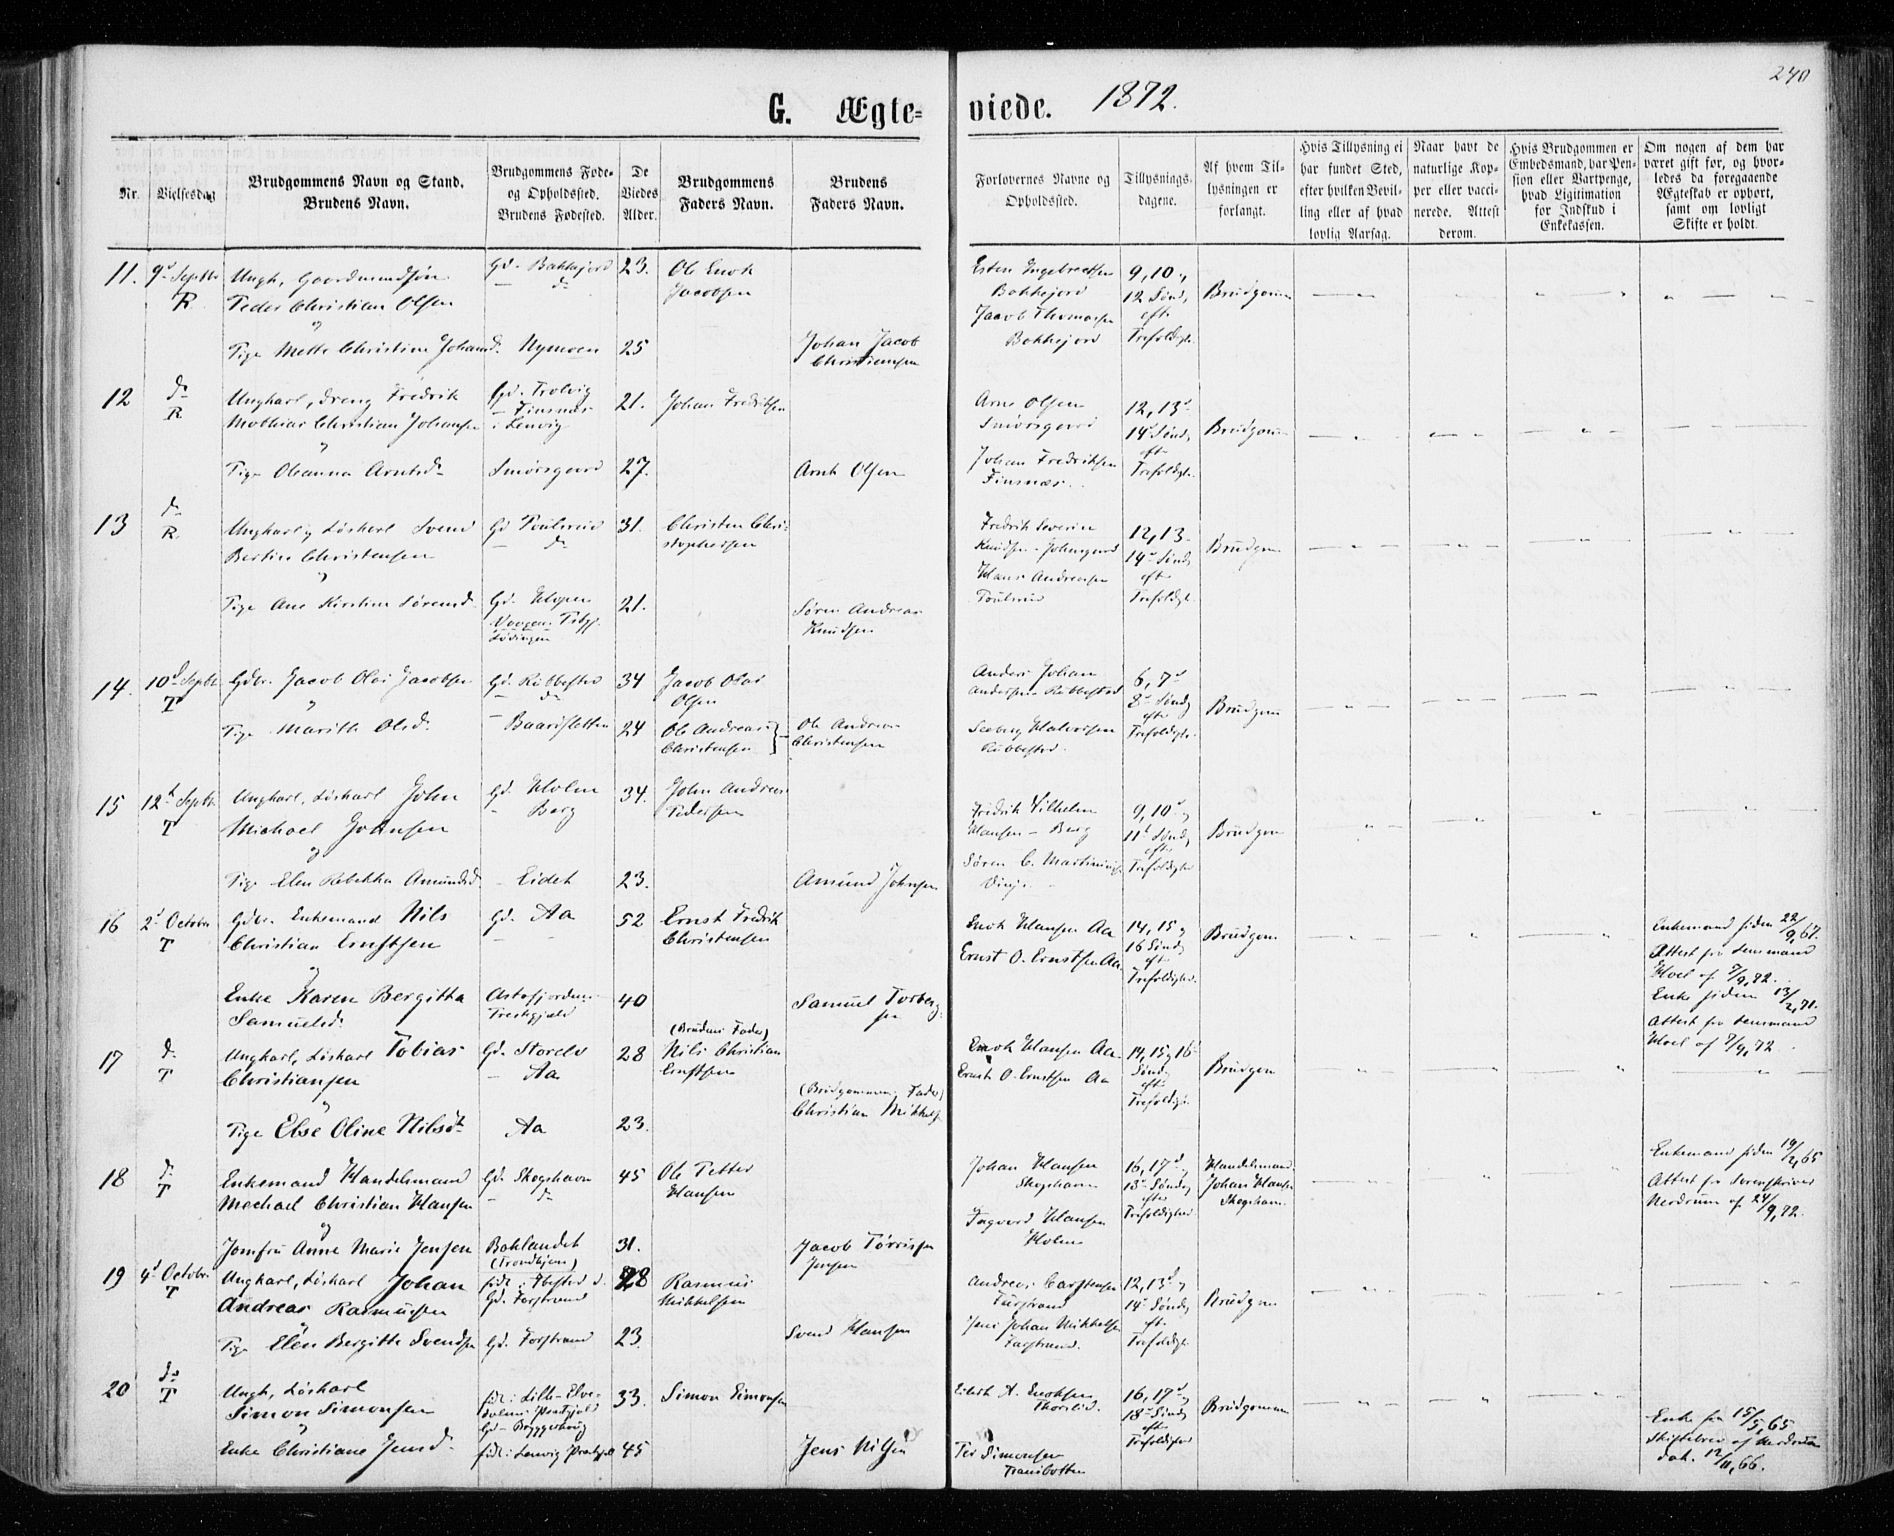 240
G. Ægte-
viede. 1872.
Nr.
Vielsesdag
Brudgommens Navn og Stand.
Brudens Navn.
Brudgommens Føde-
og Opholdssted.
Brudens Fødested.
De
Viedes
Alder.
Brudgommens
Faders Navn.
Brudens
Faders Navn.
Forlovernes Navne og
Opholdssted.
Tillysnings-
dagene.
Af hvem Til-
lysningen er
forlangt.
Hvis Tillysning ei
har fundet Sted,
efter hvilken Bevil-
ling eller af hvad
lovlig Aarsag.
Naar havt de
naturlige Kop-
per eller vacci-
nerede. Attest
derom.
Hvis Brudgommen er
Embedsmand, har Pen-
sion eller Vartpenge,
hvad Ligitimation
for Indskud i
Enkekassen.
Om nogen af dem har
været gift før, og hvor-
ledes da foregaaende
Ægteskab er ophørt,
samt om lovligt
Skifte er holdt.
11. 9d Septbr
R.
Ungk,
Peder Christian Olsen
og
Pige Mette Christine Johansd.
Gd. Bakkejord
do
Nymoen
23.
25
Ole Enok
Jacobsen
Johan Jacob
Christiansen
Esten Ingebrectsen
Bakkejord
Jacob Thomassen
Bakkejord
9, 10.,
12 Sønd,
eft.
Trefoldigh.
Brudgomm
12 do
R
Ungkarl, dreng Fredrik
Mathias Christian Johansen
og
Pige Oleanna Arntsd.
Gd. Trolvig
- Finsnæs
i Lenvig
Smørsgaard
21.
27.
Johan Fredriksen
Arnt Olsen
Arne Olsen
Smørsgaard
Johan Fredriksen
Finsnæs.
12, 13d
14d Sønd,
eft
Trefoldigh.
Brudgom
13 do
R.
Ungkarl, Løskarl Svend
Bertin Christensen
og
Pige Ane Kirstine Sørensd.
Gd
do
Gd.
Lødingen
31.
21.
Christen Chri-
stophersen
Søren Andreas
Knudsen
Fredrik Severin
Knudsen
Hans Andreasen
12, 13
14d Sønd,
eft
Trefoldigh.
Brudgom
14. 10d Septbr.
T
Gdbr. Jacob Olai Jacobsen
og
Pige Marith Olsd.
Gd. Kubbestad
do
-
34
24
Jacob Olai
Olsen
Ole Andreas
Christensen
Ole Andreas
Christensen
Anders Johan
Andersen Kubbestad
Kubbestad.
6, 7d
8d Sønd,
efte
Trefoldigh.
Brudgom
15 12d Septbr.
T
Ungkarl, Løskarl John
Michael Johnsen
og
Pige Elen Rebekka Amundsd.
Gd. Holm
- Berg
- Eidet
34.
23.
John Andreas
Pedersen
Amund Johnsen
Fredrik Vilhelm
Hansen - Berg
Søren C.
9, 10d
11d Sønd,
efte
Trefoldighe
Brudgom
16 2d October
T
Gdbr. Enkemand Nils
Christian Ernstsen
og
Enke Karen Bergitha
Samuelsd.
Gd. Aa
Astafjordens
Prestegjeld
52
40
Ernst Fredrik
Christensen
Samuel Torberg-
sen
Enok Hansen Aa
Ernst O. Ernstsen Aa.
14, 15 og
16 Sønd,
eft
Trefoldighed.
Brudgom
Enkemand siden 22/9,67.
Attest fra Lensmand
Hoel af 7/9,72.
Enke siden 13/2,71.
Attest fra Lensmand
Hoel af 7/9,72.
17 do
T
Ungkarl, Løskarl Tobias
Christiansen
og
Pige Else Oline Nilsdt
Gd. Storelv
- Aa
Aa
28
23.
(Brudens Fader)
Nils Christian
Ernstsen
(Brudgommens Fader)
Christian Mikkels.
Enok Hansen Aa
Ernst O. Ernstsen Aa
14, 15 og 16
Sønd,
eft.
Trefoldigh.
Brudgom
18 do
T
Enkemand Handelsmand
Mechael Christian Hansen
og
Jomfru Anne Marie Jensen
Gd. Skogshavn
do
Baklandet
(Trondhjem)
45
31.
Ole Petter
Hansen
Jacob Tørrissen
Jensen
Johan Hansen
Skogshavn
Ingvard Hansen
Holm
16, 17d
18d Sønd,
efter
Trefoldighed
Handelsmand
Johan Hansen
Skogshavn.
Enkemand siden 19/2,65
Attest fra Sorenskriver
Nerdrum af 24/9,72.
19 4d October
T
Ungkarl, Løskarl Johan
Andreas Rasmussen
og
Pige Elen Bergitte Svendsen
fød. i Ibestad
Gd. Forstrand
Gd. Forstrand
28
23.
Rasmus
Mikkelsen
Svend Hansen
Andreas Carstensen
Forstrand
Jens Johan Mikkelsen
Forstrand.
12, 13d,
14d Sønd,
eft.
Trefoldigh.
Brudgom
20 do
T
Ungk, Løskarl
Simon Simonsen
og
Enke Christiane Jensd.
fød. i Lille-Elve-
dalens Præstgjeld
Gd.
fød. i Lenvig Præstgjeld
33.
45
Simon Simonsen
Jens Nilsen
Per Simonsen
Tranibotten
16, 17d
18d Sønd,
efte
Trefoldighed
Brudgommen
Enke fra 15/5,65
Skiftebrev af Nerdrum
dat. 12/11,66.